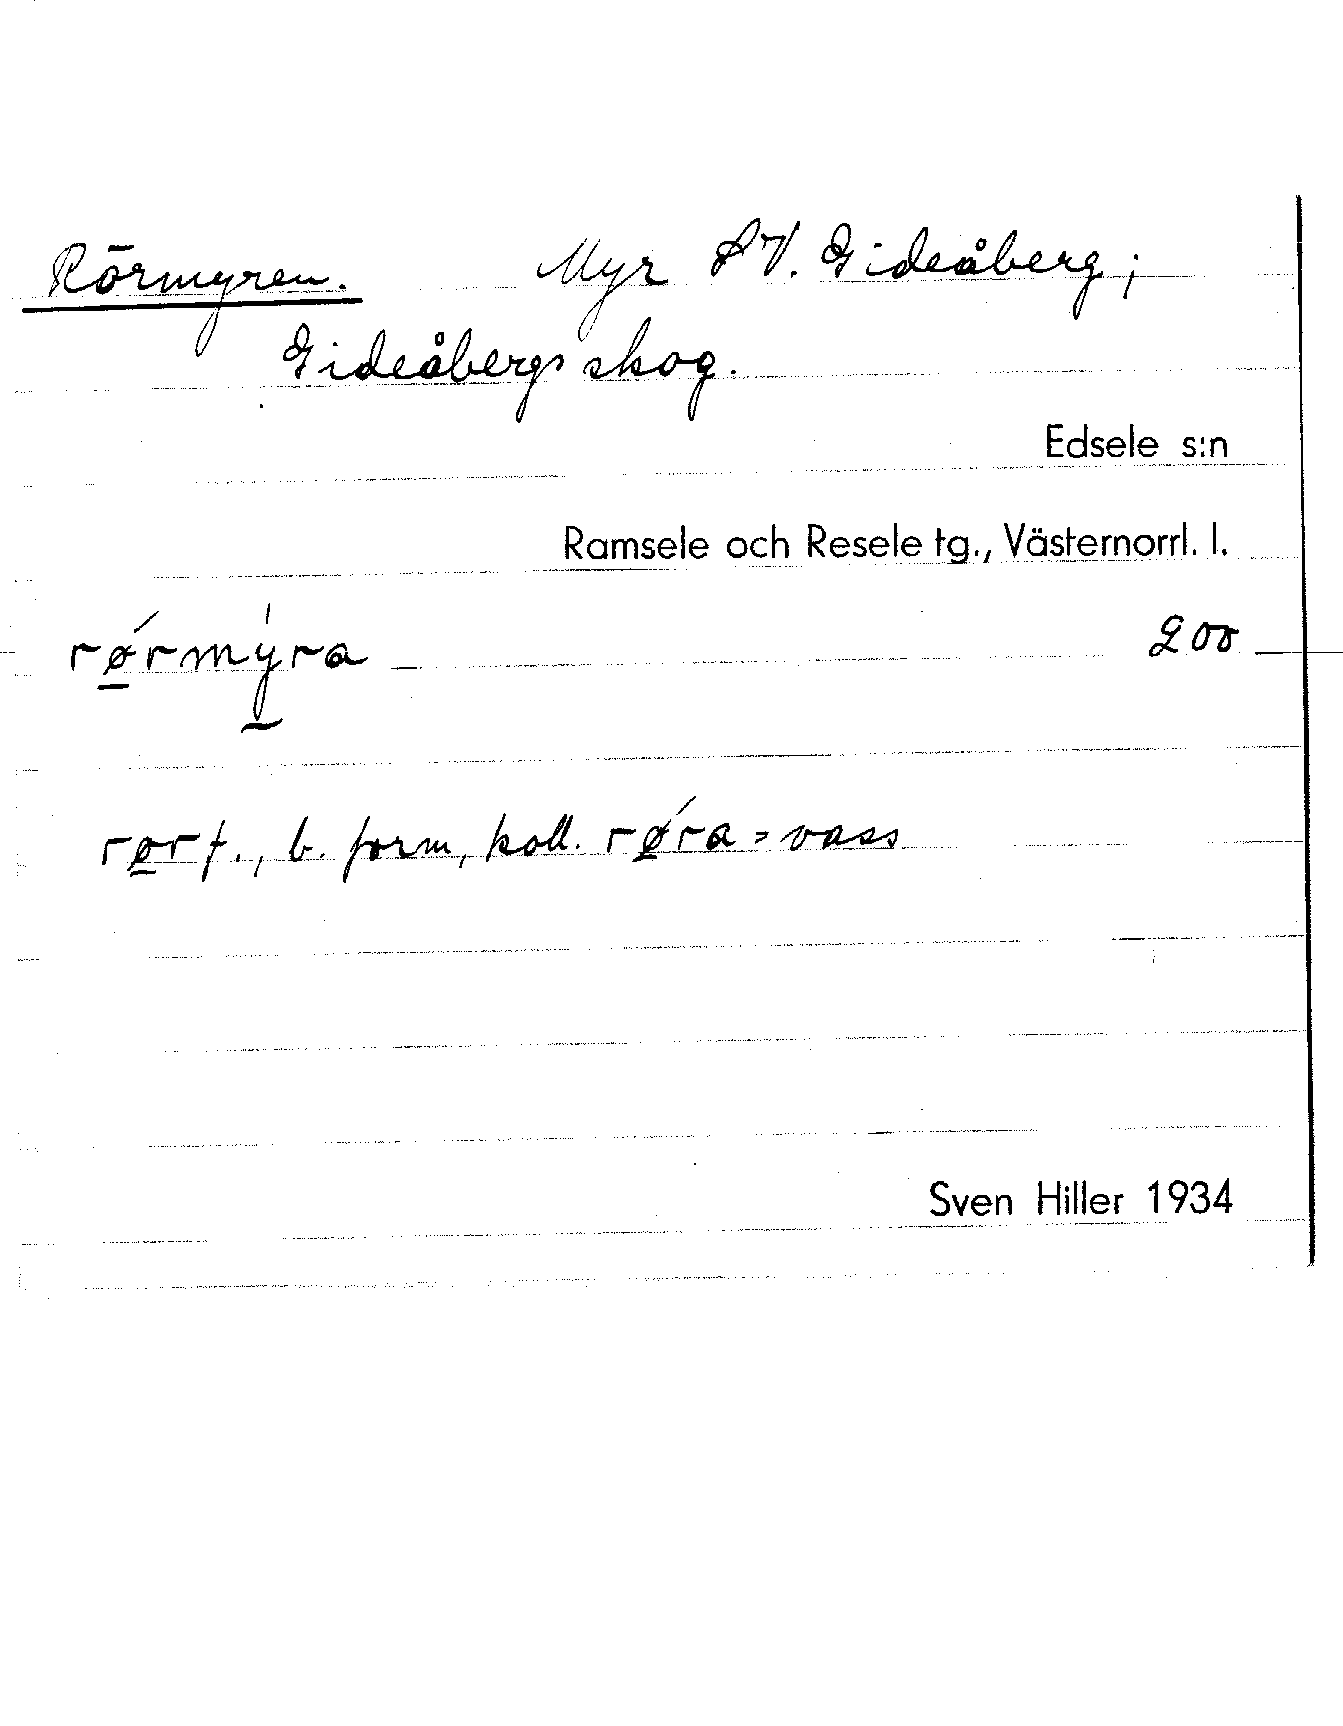 Rörmyren. Myr SV. Gideåberg;
Gideåbergs skog.
Edsele s:n
Ramsele och Resele tg., Västernorrl. l.
rørmyra 200
rør f., b. form, koll. røra = vass
Sven Hiller 1934